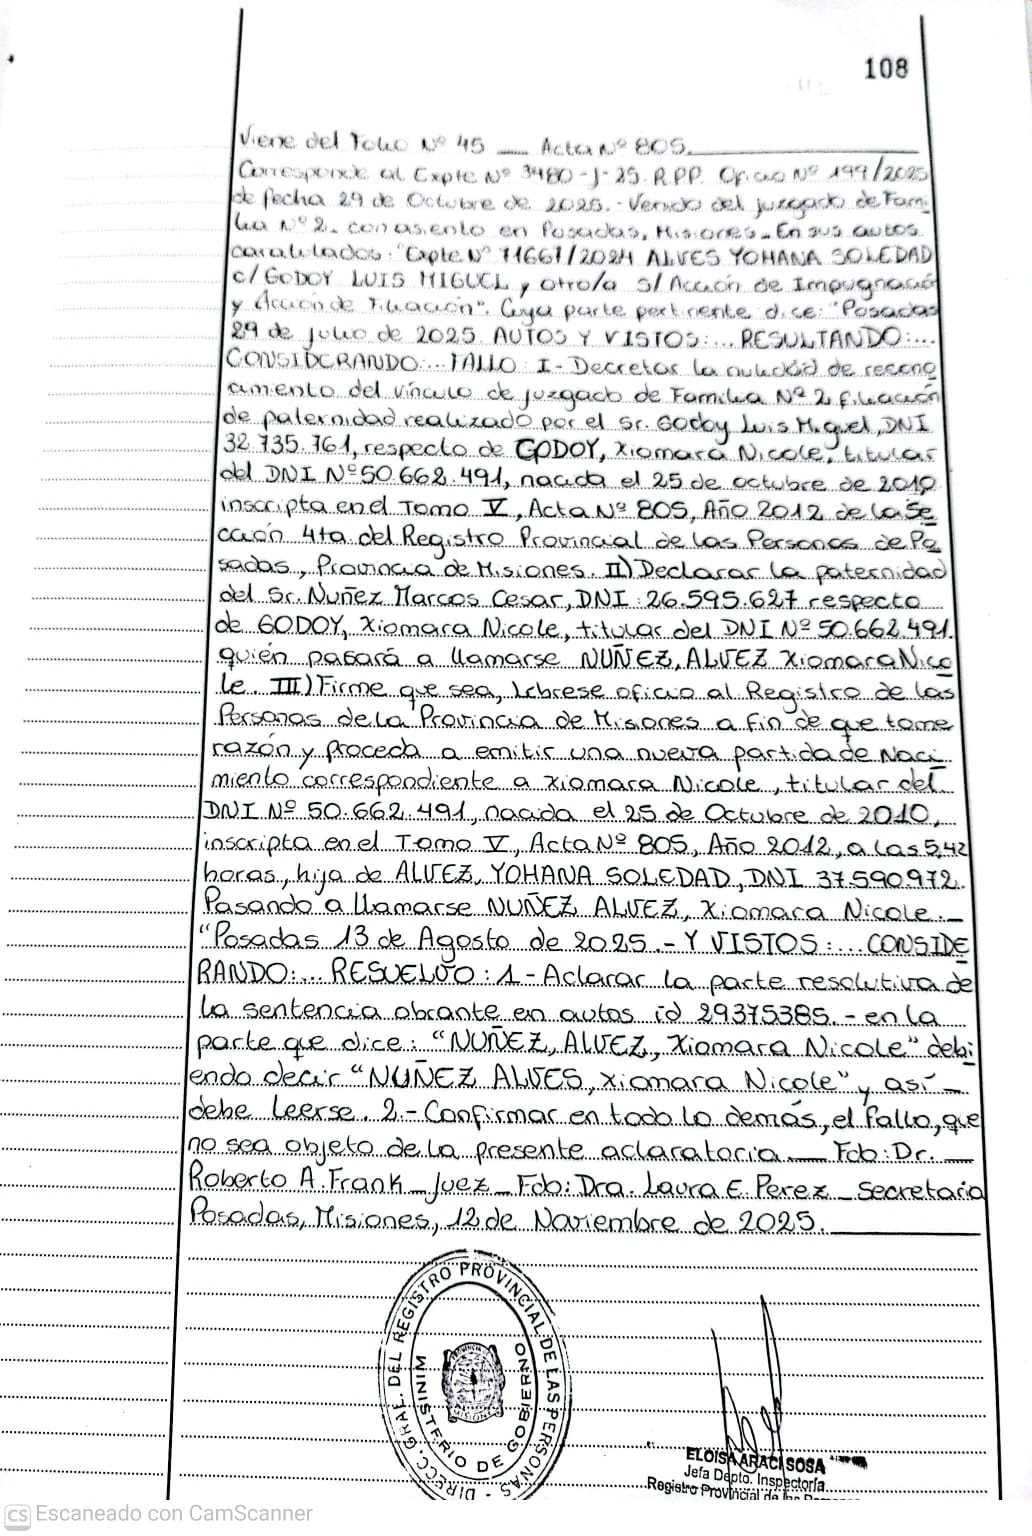 108
Viene del Folio Nº 45 __ Acta Nº 805.
Corresponde al Expte Nº 3480-J-25. R.P.P. Oficio Nº 199/2025
de fecha 29 de Octubre de 2025.- Venido del juzgado de Fami
lia Nº 2. con asiento en Posadas, Misiones. En sus autos
caratulados: "Expte Nº 71661/2024 ALVES YOHANA SOLEDAD
c/ GODOY LUIS MIGUEL y otro/a s/ Acción de Impugnación
y Acción de Filiación". Cuya parte pertinente dice: "Posadas
29 de julio de 2025. AUTOS Y VISTOS:... RESULTANDO:...
CONSIDERANDO:... FALLO: I- Decretar la nulidad de recono
camiento del vínculo de juzgado de Familia Nº 2 filiación
de paternidad realizado por el Sr. Godoy Luis Miguel, DNI
32.735.761, respecto de GODOY, Xiomara Nicole, titular
del DNI Nº 50.662.491, nacida el 25 de octubre de 2010
inscripta en el Tomo V, Acta Nº 805, Año 2012 de la Se
cción 4ta del Registro Provincial de las Personas de Po
sadas, Provincia de Misiones. II) Declarar la paternidad
del Sr. Nuñez Marcos Cesar, DNI: 26.595.627 respecto
de GODOY, Xiomara Nicole, titular del DNI Nº 50.662.491.
quién pasará a llamarse NUÑEZ, ALVEZ Xiomara Nico
le. III) Firme que sea, librese oficio al Registro de las
Personas de la Provincia de Misiones a fin de que tome
razón y proceda a emitir una nueva partida de Naci
miento correspondiente a Xiomara Nicole, titular del
DNI Nº 50.662.491, nacida el 25 de Octubre de 2010,
inscripta en el Tomo V, Acta Nº 805, Año 2012, a las 5,42
horas, hija de ALVEZ, YOHANA SOLEDAD, DNI 37.590.972.
Pasando a llamarse NUÑEZ ALVEZ, Xiomara Nicole.-
"Posadas 13 de Agosto de 2025.- Y VISTOS:... CONSIDE
RANDO:... RESUELVO: 1- Aclarar la parte resolutiva de
la sentencia obrante en autos id 29375385.- en la
parte que dice: "NUÑEZ, ALVEZ, Xiomara Nicole" debi
endo decir "NUÑEZ ALVES, Xiomara Nicole" y así-
debe leerse. 2.- Confirmar en todo lo demás, el fallo, que
no sea objeto de la presente aclaratoria. __ Fdo: Dr. __
Roberto A. Frank - Juez - Fdo: Dra. Laura E. Perez - Secretaria
Posadas, Misiones, 12 de Noviembre de 2025.
DIRECC. GRAL. DEL REGISTRO PROVINCIAL DE LAS PERSONAS
MINISTERIO DE GOBIERNO
MISIONES
ELOISA ARACI SOSA
Jefa Depto. Inspectoría
Registro Provincial de las
CS Escaneado con CamScanner